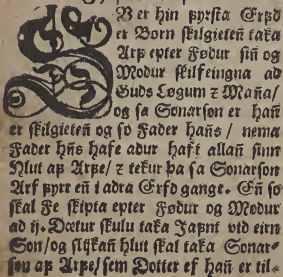 SU er hin fyrsta Erfd
er Born skilgieteñ taka
Arf epter Fødur siñ og
Modur skilfeingna ad
Guds Løgum ꝛ Maña/
og sa Sonarson er hañ
er skilgieteñ og so Fader hañs / nema
Fader hñs hafe adur haft allañ sinn
Hlut af Arfe/ ꝛ tekur þa sa Sonarson
Arf fyre eñ i adra Erfd gange. Eñ so
skal Fe skipta epter Fødur og Modur
ad ij. Dœtur skulu taka Jafnt vid eirn
Son/og slijkañ hlut skal taka Sonar⸗
son af Arfe/ sem Dotter ef hañ er til⸗